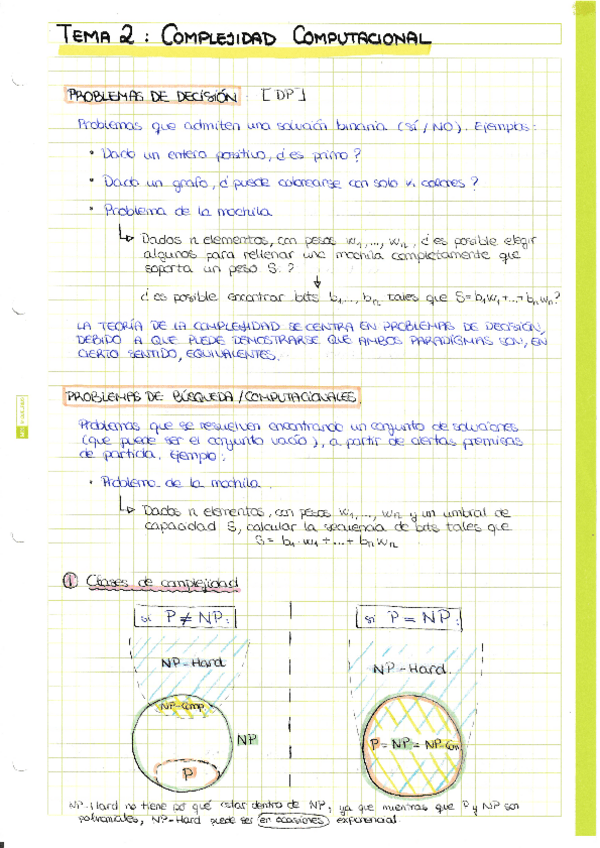 TEMA 2 : COMPLEJIDAD COMPUTACIONAL
PROBLEMAS DE DECISIÓN : [DP]
Problemas que admiten una solución binaria (SÍ / NO). Ejemplos:
• Dado un entero positivo, ¿es primo?
• Dado un grafo, ¿puede colorearse con solo k colores?
• Problema de la mochila
Dados n elementos, con pesos w1,..., wn, ¿es posible elegir
algunos para rellenar una mochila completamente que
soporta un peso S.?
¿es posible encontrar bits b1,..., bn tales que S=b1w1+...+bnwn?
LA TEORÍA DE LA COMPLEJIDAD SE CENTRA EN PROBLEMAS DE DECISIÓN,
DEBIDO A QUE PUEDE DEMOSTRARSE QUE AMBOS PARADIGMAS SON, EN
CIERTO SENTIDO, EQUIVALENTES.
PROBLEMAS DE BÚSQUEDA / COMPUTACIONALES.
Problemas que se resuelven encontrando un conjunto de soluciones
(que puede ser el conjunto vacío), a partir de ciertas premisas
de partida. Ejemplo:
• Problema de la mochila.
Dados n elementos, con pesos w1,..., wn y un umbral de
capacidad S, calcular la secuencia de bits tales que
S = b1·w1+...+bnwn
① Clases de complejidad
si P ≠ NP:
si P = NP:
NP-Hard
NP-Hard.
NP-Comp
NP
P = NP = NP-Com
P
NP-Hard no tiene por qué estar dentro de NP, ya que mientras que P y NP son
polinomiales, NP-Hard puede ser en ocasiones exponencial.